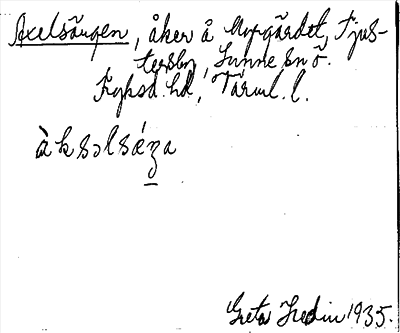 Axelsängen, åker å Nygärdet, Tjus-
tersby, Sunne sn ö.
Fryksd. hd, Värml. l.
àksəlsǽŋa
Greta Hedin 1935.